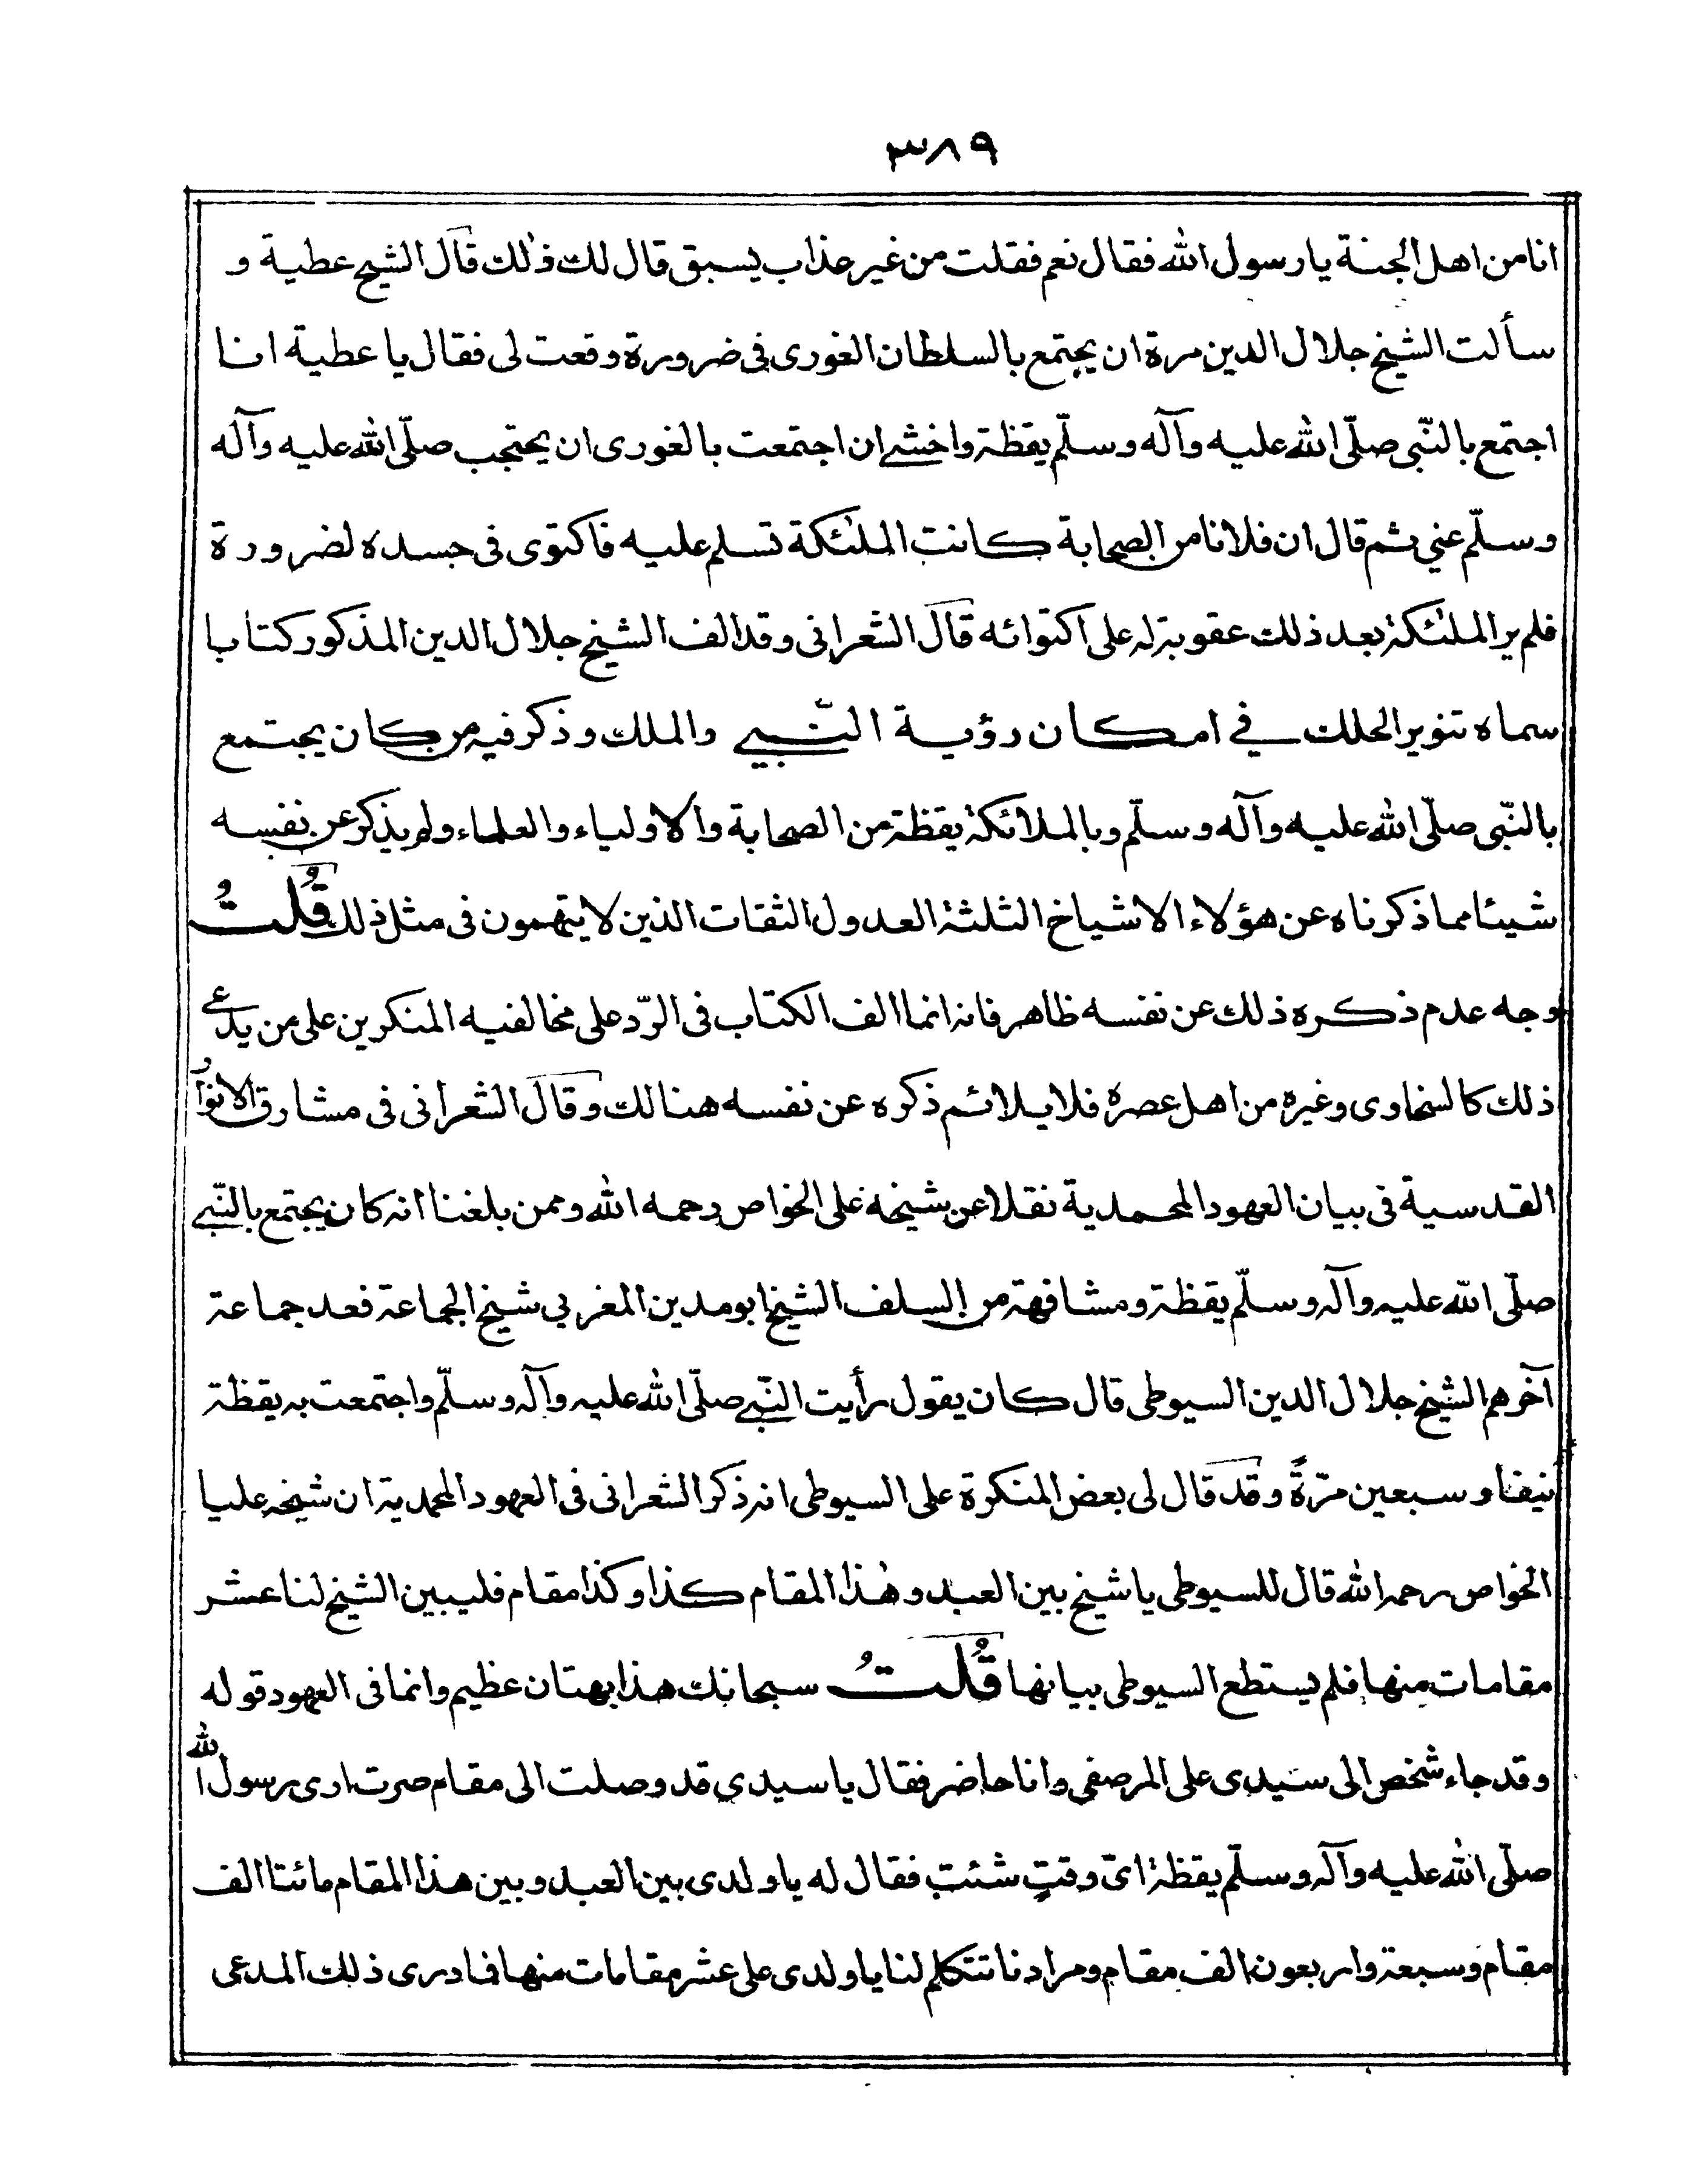 ٣٨٩
انا من اهل الجنة يا رسول الله فقال نعم فقلت من غير عذاب يسبق قال لك ذلك قال الشيخ عطية و
سألت الشيخ جلال الدين مرة ان يجتمع بالسلطان الغورى فى ضرورة وقعت لى فقال يا عطية انا
اجتمع بالنّبى صلّى الله عليه وآله وسلّم يقظة واخشى ان اجتمعت بالغورى ان يحتجب صلّى الله عليه وآله
وسلّم عني ثم قال ان فلانا من الصحابة كانت الملٰئكة تسلم عليه فاكتوى فى جسده لضرورة
فلم ير الملٰئكة بعد ذلك عقوبة له على اكتوائه قال الشعرانى وقد الف الشيخ جلال الدين المذكور كتابا
سماه تنوير الحلك في امكان رؤية النّبي والملك وذكر فيه من كان يجتمع
بالنّبى صلّى الله عليه وآله وسلّم وبالملائكة يقظة من الصحابة والاولياء والعلماء ولم يذكر عن نفسه
شيئا مما ذكرناه عن هؤلاء الاشياخ الثلثة العدول الثقات الذين لا يتهمون فى مثل ذلك قُلتُ
وجه عدم ذكره ذلك عن نفسه ظاهر فانه انما الف الكتاب فى الرّد على مخالفيه المنكرين على من يدعى
ذلك كالسخاوى وغيره من اهل عصره فلا يلائم ذكره عن نفسه هنالك وقال الشعرانى فى مشارق الانوار
القدسية فى بيان العهود المحمدية نقلا عن شيخه على الخواص رحمه الله وممن بلغنا انه كان يجتمع بالنّبي
صلّى الله عليه وآله وسلّم يقظة ومشافهة من السلف الشيخ ابو مدين المغربي شيخ الجماعة فعد جماعة
آخرهم الشيخ جلال الدين السيوطى قال كان يقول رأيت النّبي صلّى الله عليه وآله وسلّم واجتمعت به يقظة
نيفا وسبعين مرّةً وقد قال لى بعض المنكرة على السيوطى انه ذكر الشعرانى فى العهود المحمدية ان شيخه عليا
الخواص رحمه الله قال للسيوطى يا شيخ بين العبد وهٰذا المقام كذا وكذا مقام فليبين الشيخ لنا عشر
مقامات منها فلم يستطع السيوطى بيانها قُلتُ سبحانك هذا بهتان عظيم وانما فى العهود قوله
وقد جاء شخص الى سيدى على المرصفى وانا حاضر فقال يا سيدى قد وصلت الى مقام صرت ارى رسول الله
صلّى الله عليه وآله وسلّم يقظة اىّ وقتٍ شئت فقال له يا ولدى بين العبد وبين هذا المقام مائتا الف
مقام وسبعة واربعون الف مقام ومرادنا تتكلم لنا يا ولدى على عشر مقامات منها فما درى ذلك المدعى